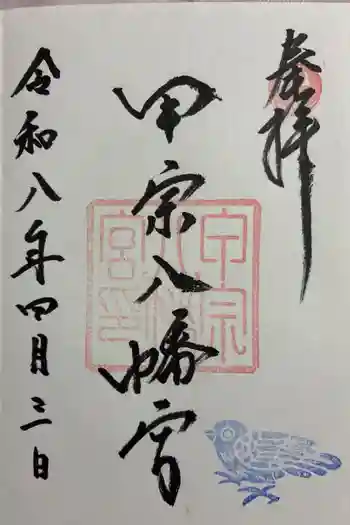 奉拝
甲宗八幡宮
令和八年四月三日
甲宗
八幡
宮印